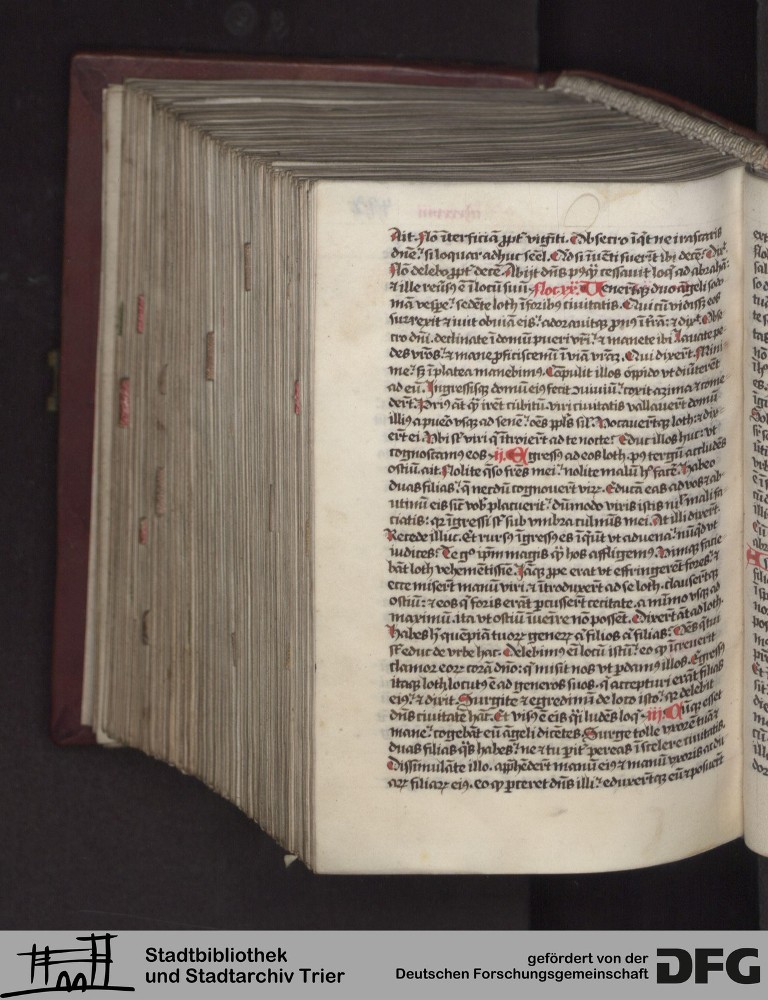 Ait. Nō īterficiā ꝓpt̄ vigīti. Obsecro īqt ne irascaris
dn̄e: si loquar adhuc semel. Qd si īuēti fuerīt ibi decē: Dix̄
Nō delebo ꝓpt̄ decē. Abijt dn̄s pꝰqͣ cessauit loq̄ ad abrahā:
⁊ ille reūsꝰ ē ī locū suū. Venerūtqꝫ duo āgeli sodo
mā vespe: sedēte loth ī foribꝰ ciuitatis. Qui cū vidissꝫ eos
surrexit ⁊ iuit obuiā eis: adorauitqꝫ pronꝰ ī trā: ⁊ dixͭ. Obse
cro dn̄i. declinate ī domū pueri vr̄i: ⁊ manete ibi. Lauate pe
des vr̄os: ⁊ mane ꝓficiscemī ī viā vr̄aꝫ. Qui dixerūt. Mini
me: sꝫ ī platea manebimꝰ. Cōpulit illos oppido vt diūterēt
ad eū. Ingressisqꝫ domū eiꝰ fecit ꝯuiuiū: coxit azima ⁊ come
derūt. Priꝰ āt qͣ irēt cubitū. viri ciuitatis vallauerūt domū
illiꝰ a puero vsqꝫ ad senē: oēs ppl̄s sil̄. Vocauerūtqꝫ loth: ⁊ dix
erūt ei. Vbi sūt viri q̄ ītroierūt ad te nocte: Educ illos huc: vt
cognoscamꝰ eos. ij. Egressꝰ ad eos loth. pꝰ tergū accludēs
ostiū ait. Nolite q̄so frēs mei: nolite malū hͦ facē. Habeo
duas filias: q̄ necdū cognouerūt virꝫ. Educā eas ad vos ⁊ ab
utimī eis sic̄ vob̄ placuerit: dūmodo viris istis nil mali fa
ciatis: qꝛ īgressi sūt sub vmbra culminis mei. At illi dixerūt.
Recede illuc. Et rursꝰ īgressꝰ es īqūt vt aduena: nūqd vt
iudices: Te gͦ ip̄m magis qͣ hos affligemꝰ. Vimqꝫ facie
bāt loth vehemētissie. Iāqꝫ ꝓpe erat vt effringerēt fores: ⁊
ecce miserūt manū viri: ⁊ ītroduxerūt ad se loth. clauserūtqꝫ
ostiū: ⁊ eos q̄ foris erāt ꝑcusserūt cecitate. a mīmo vsqꝫ ad
maximū. ita vt ostiū īuenire nō possēt. Dixerūt āt ad loth.
Habes hͥ quēpiā tuoꝝ generꝫ aͭ filios aͭ filias: Oēs q̄ tui
sūt educ de vrbe hac. Delebimꝰ eī locū istū: eo ꝙ īcreuerit
clamor eoꝝ corā dn̄o: q̄ misit nos vt ꝑdamꝰ illos. Egressꝰ
itaqꝫ loth locutꝰ ē ad generos suos. q̄ accepturi erāt filias
eiꝰ: ⁊ dixit. Surgite ⁊ egredimī de loco isto: qꝛ delebit
dn̄s ciuitatē hāc. Et visꝰ ē eis qͣi ludēs loq̄. iij. Cūqꝫ esset
mane: cogebāt eū āgeli dicētes. Surge tolle vxorē tuā ⁊
duas filias q̄s habes: ne ⁊ tu pit̄ pereas ī scelere ciuitatis.
Dissimulāte illo. apphēderūt manū eiꝰ ⁊ manū vxoris ac du
aꝝ filiaꝝ eiꝰ. eo ꝙ ꝑceret dn̄s illi: eduxerūtqꝫ eū ⁊ posuerūt
Stadtbibliothek
und Stadtarchiv Trier
gefördert von der
Deutschen Forschungsgemeinschaft DFG